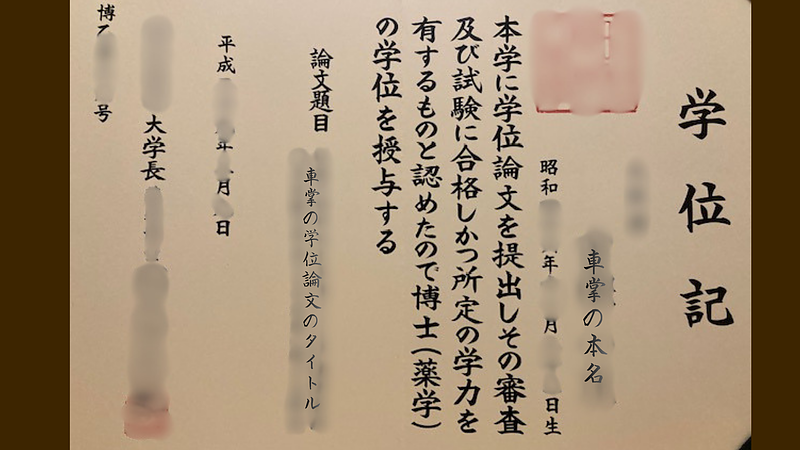 学位記
車掌の本名
昭和 年 月 日生
本学に学位論文を提出しその審査
及び試験に合格しかつ所定の学力を
有するものと認めたので博士(薬学)
の学位を授与する
論文題目
車掌の学位論文のタイトル
平成 年 月 日
大学長
博 号